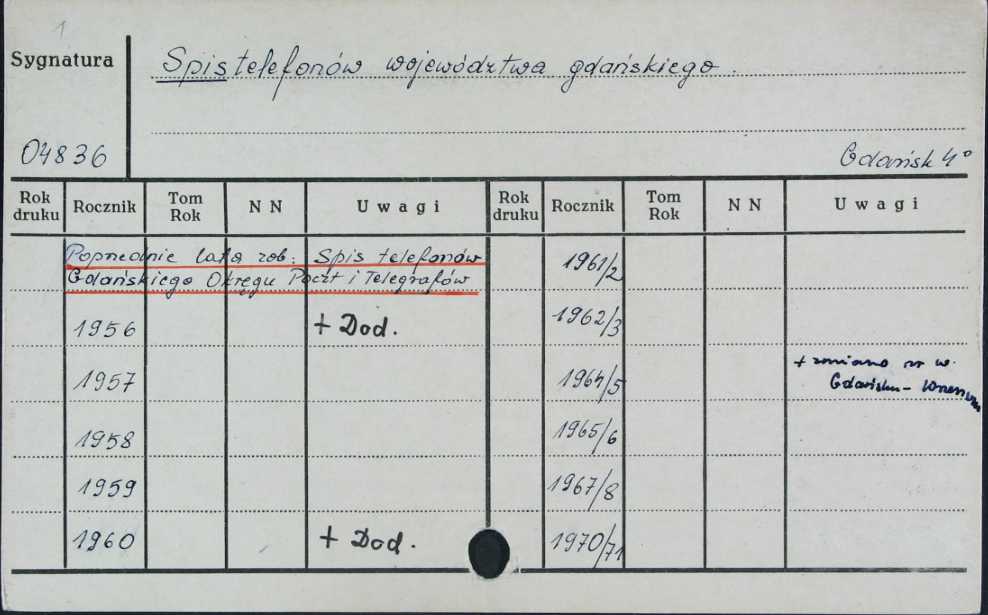 1
Sygnatura
Spis telefonów województwa gdańskiego.
04836
Gdańsk 4°
Rok druku Rocznik Tom Rok N N Uwagi Rok druku Rocznik Tom Rok N N Uwagi
Poprzednie lata zob: Spis telefonów
Gdańskiego Okręgu Poczt i Telegrafów
1961/2
1956 + Dod. 1962/3
1957 1964/5 + zmiana nr w.
Gdańsku -
1958 1965/6
1959 1967/8
1960 + Dod. 1970/71